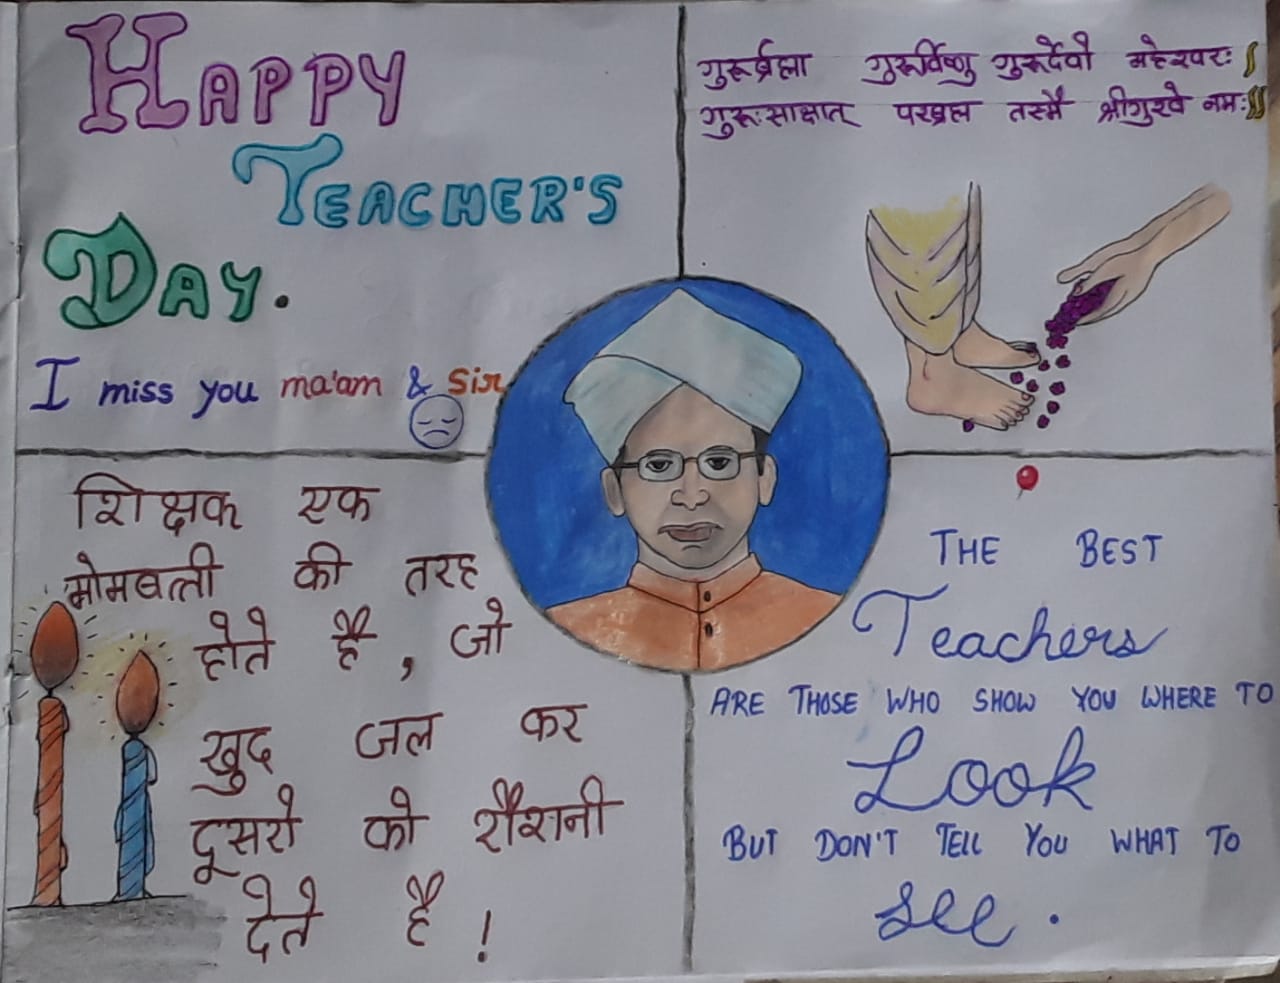 HAPPY
TEACHER'S
DAY.
I miss you ma'am & Sir
गुरूर्ब्रह्मा गुरूर्विष्णु गुरूर्देवो महेश्वरः।
गुरूःसाक्षात् परब्रह्म तस्मै श्रीगुरवे नमः॥
शिक्षक एक
मोमबत्ती की तरह
होते है, जो
खुद जल कर
दूसरो को रौशनी
देते है !
THE BEST
Teachers
ARE THOSE WHO SHOW YOU WHERE TO
Look
BUT DON'T TELL YOU WHAT TO
see.